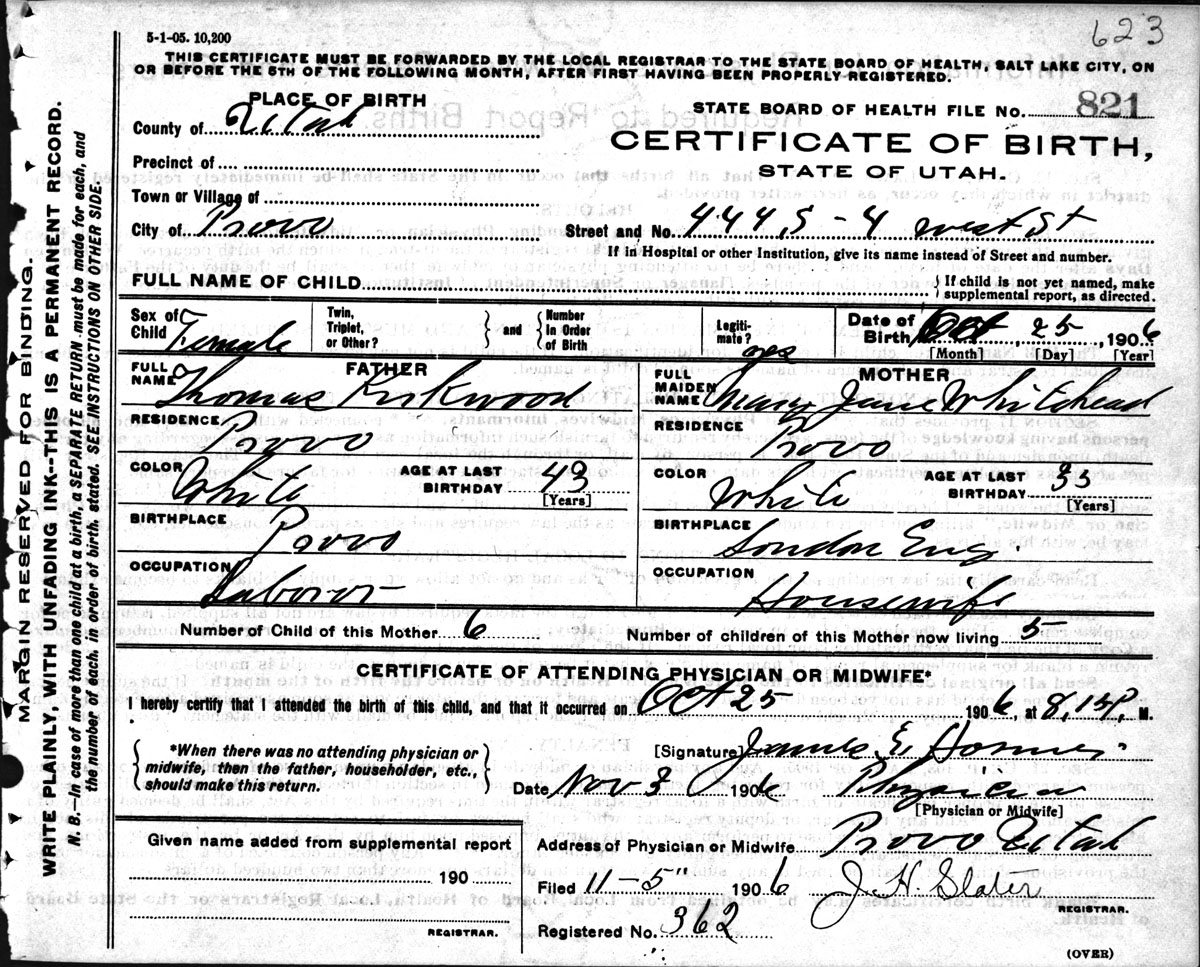 623
5-1-05. 10,200
THIS CERTIFICATE MUST BE FORWARDED BY THE LOCAL REGISTRAR TO THE STATE BOARD OF HEALTH, SALT LAKE CITY, ON
OR BEFORE THE 5TH OF THE FOLLOWING MONTH, AFTER FIRST HAVING BEEN PROPERLY REGISTERED.
MARGIN RESERVED FOR BINDING.
WRITE PLAINLY, WITH UNFADING INK--THIS IS A PERMANENT RECORD.
N. B. In case of more than one child at a birth, a SEPARATE RETURN must be made for each, and
the number of each, in order of birth, stated. SEE INSTRUCTIONS ON OTHER SIDE.
PLACE OF BIRTH
County of Utah
Precinct of
Town or Village of
City of Provo
STATE BOARD OF HEALTH FILE No. 821
CERTIFICATE OF BIRTH,
STATE OF UTAH.
Street and No. 444 S - 4 West St
If in Hospital or other Institution, give its name instead of Street and number.
FULL NAME OF CHILD
If child is not yet named, make
supplemental report, as directed.
Sex of Child Female
Twin, Triplet, or Other?
and
Number In Order of Birth
Legiti-mate? yes
Date of Birth Oct, 25, 1906
[Month] [Day] [Year]
FATHER
FULL NAME Thomas Kirkwood
RESIDENCE Provo
COLOR White
AGE AT LAST BIRTHDAY 43
[Years]
BIRTHPLACE Provo
OCCUPATION Laborer
MOTHER
FULL MAIDEN NAME Mary Jane Whitehead
RESIDENCE Provo
COLOR White
AGE AT LAST BIRTHDAY 33
[Years]
BIRTHPLACE London Eng.
OCCUPATION Housewife
Number of Child of this Mother 6
Number of children of this Mother now living 5
CERTIFICATE OF ATTENDING PHYSICIAN OR MIDWIFE*
I hereby certify that I attended the birth of this child, and that it occurred on Oct 25 1906, at 8,15P, M.
*When there was no attending physician or
midwife, then the father, householder, etc.,
should make this return.
[Signature] James E.
Date Nov 3 1906 Physician
[Physician or Midwife]
Given name added from supplemental report
190
REGISTRAR.
Address of Physician or Midwife Provo Utah
Filed 11-5" 1906 J. H. Slater
REGISTRAR.
Registered No. 362
(OVER)